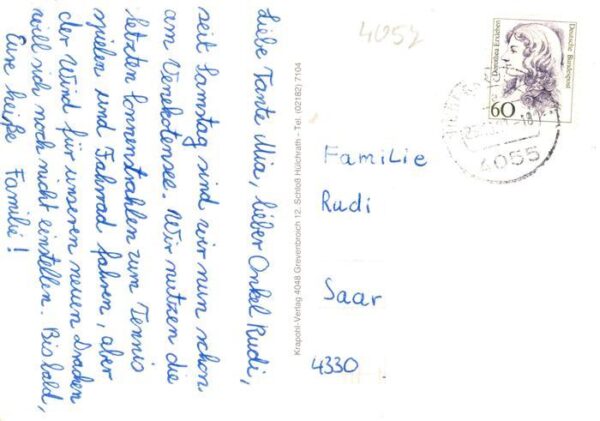 Liebe Tante Mia, lieber Onkel Rudi,
seit Samstag sind wir nun schon
am Venekotensee. Wir nutzen die
letzten Sonnenstrahlen zum Tennis
spielen und Fahrrad fahren, aber
der Wind für unseren neuen Drachen
will sich noch nicht einstellen. Bis bald,
Eure heiße Familie!
Krapohl-Verlag 4048 Grevenbroich 12, Schloß Hülchrath - Tel. (02182) 7104
4052
Deutsche Bundespost
Dorothea Erxleben
60
4055
Familie
Rudi
Saar
4330